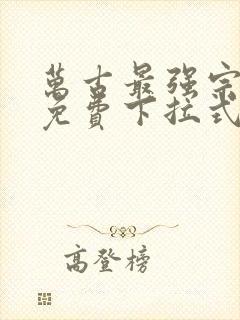 萬古最强宗
免費下拉式
高登榜